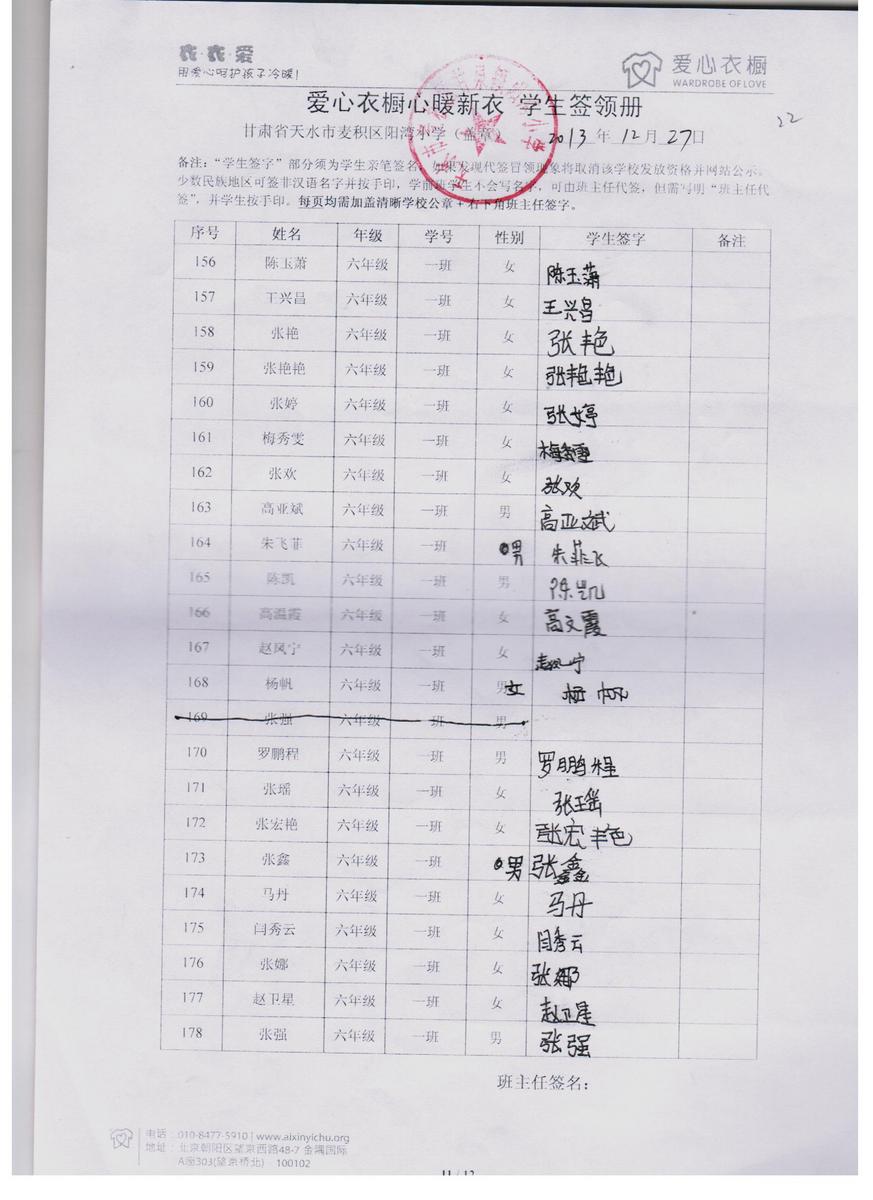 衣·衣·爱
用爱心呵护孩子冷暖!
爱心衣橱
WARDROBE OF LOVE
爱心衣橱心暖新衣 学生签领册
22
甘肃省天水市麦积区阳湾小学（盖章） 2013 年 12 月 27 日
备注：“学生签字”部分须为学生亲笔签名，如果发现代签冒领现象将取消该学校发放资格并网站公示。
少数民族地区可签非汉语名字并按手印，学前班学生不会写名字，可由班主任代签，但需写明“班主任代
签”，并学生按手印。每页均需加盖清晰学校公章+右下角班主任签字。
序号 姓名 年级 学号 性别 学生签字 备注
156 陈玉萧 六年级 一班 女 陈玉萧
157 王兴昌 六年级 一班 女 王兴昌
158 张艳 六年级 一班 女 张艳
159 张艳艳 六年级 一班 女 张艳艳
160 张婷 六年级 一班 女 张婷
161 梅秀雯 六年级 一班 女 梅秀雯
162 张欢 六年级 一班 女 张欢
163 高亚斌 六年级 一班 男 高亚斌
164 朱飞菲 六年级 一班 男 朱菲飞
165 陈凯 六年级 一班 男 陈凯
166 高温霞 六年级 一班 女 高文霞
167 赵凤宁 六年级 一班 女 赵凤宁
168 杨帆 六年级 一班 男 女 杨帆
169 张强 六年级 一班 男
170 罗鹏程 六年级 一班 男 罗鹏程
171 张瑶 六年级 一班 女 张瑶
172 张宏艳 六年级 一班 女 张宏艳
173 张鑫 六年级 一班 男 张鑫
174 马丹 六年级 一班 女 马丹
175 闫秀云 六年级 一班 女 闫秀云
176 张娜 六年级 一班 女 张娜
177 赵卫星 六年级 一班 女 赵卫星
178 张强 六年级 一班 男 张强
班主任签名：
电话：010-8477-5910 | www.aixinyichu.org
地址：北京朝阳区望京西路48-7 金隅国际
A座303(望京桥北) · 100102
11 / 12